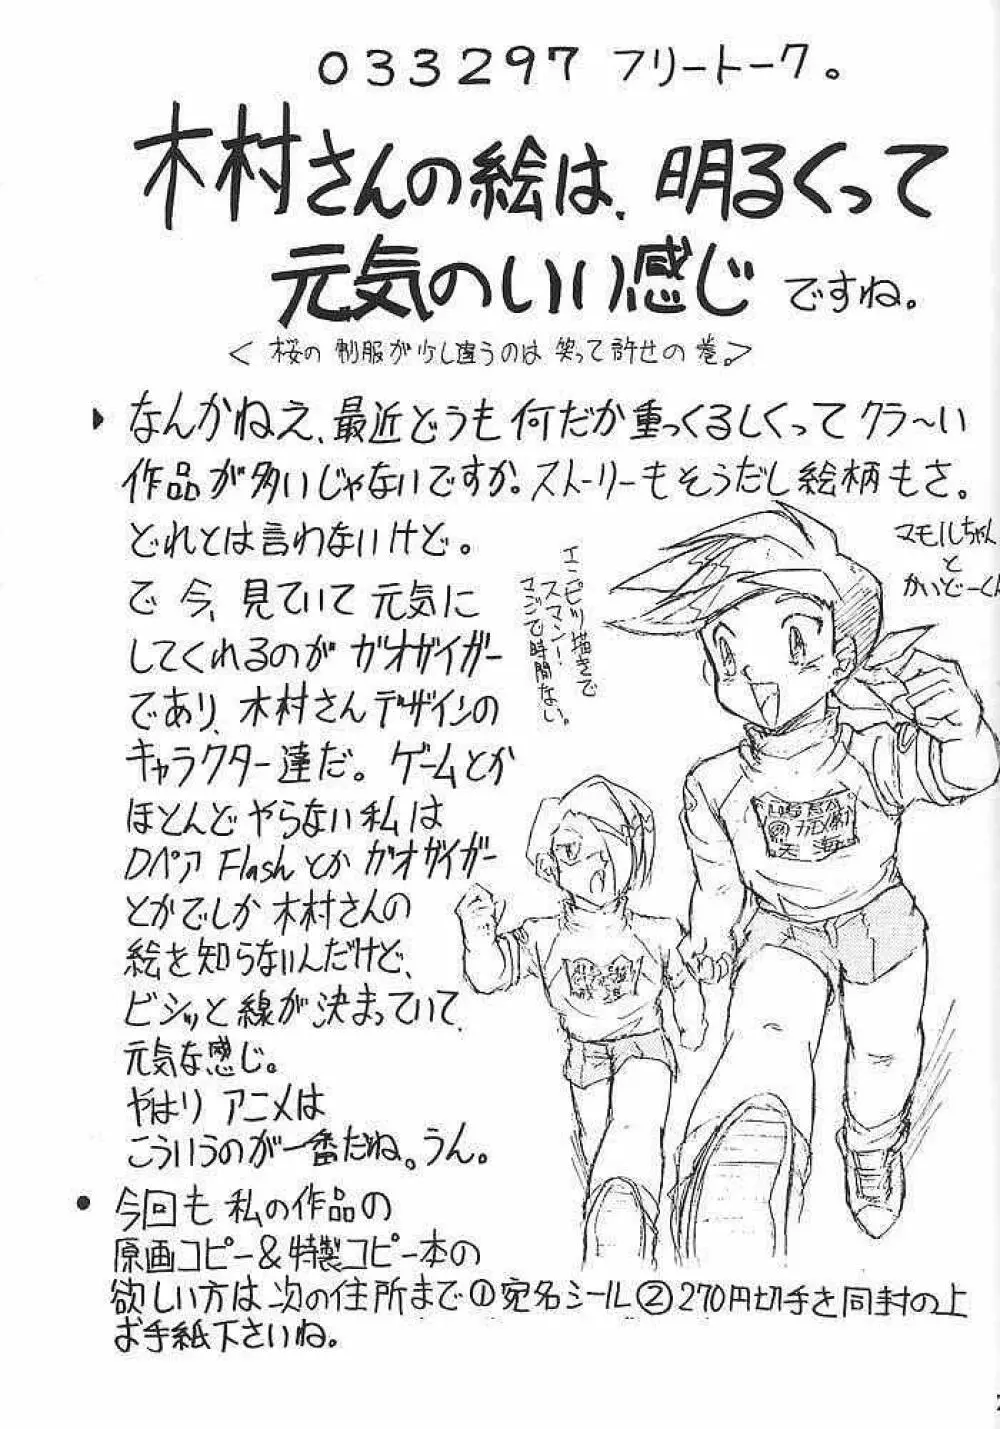 033297 フリートーク。
木村さんの絵は、明るくって
元気のいい感じですね。
< 桜の制服が少し違うのは 笑って許せの巻。>
なんかねえ、最近どうも何だか重っくるしくってクラ〜い
作品が多いじゃないですか。ストーリーもそうだし絵柄もさ。
どれとは言わないけど。
で今、見ていて元気に
してくれるのがガオガイガー
であり、木村さんデザインの
キャラクター達だ。ゲームとか
ほとんどやらない私は
Dペア Flashとかガオガイガー
とかでしか木村さんの
絵を知らないんだけど、
ビシッと線が決まっていて、
元気な感じ。
やはりアニメは
こういうのが一番だね。うん。
エンピツ描きで
スマン!
マジで時間ない。
マモルちゃん
と
かいどーくん
● 今回も私の作品の
原画コピー&特製コピー本の
欲しい方は次の住所まで①宛名シール②270円切手を同封の上
お手紙下さいね。